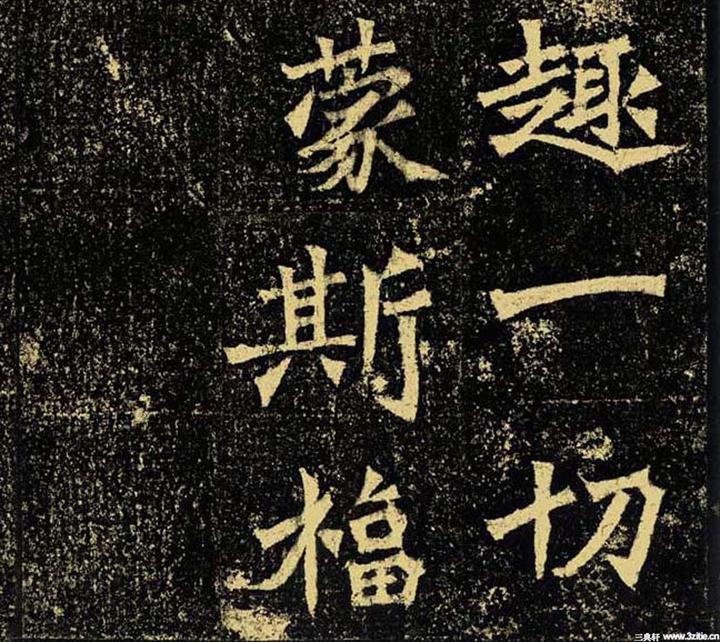 趣一切
蒙斯福
三典轩 www.3zitie.cn